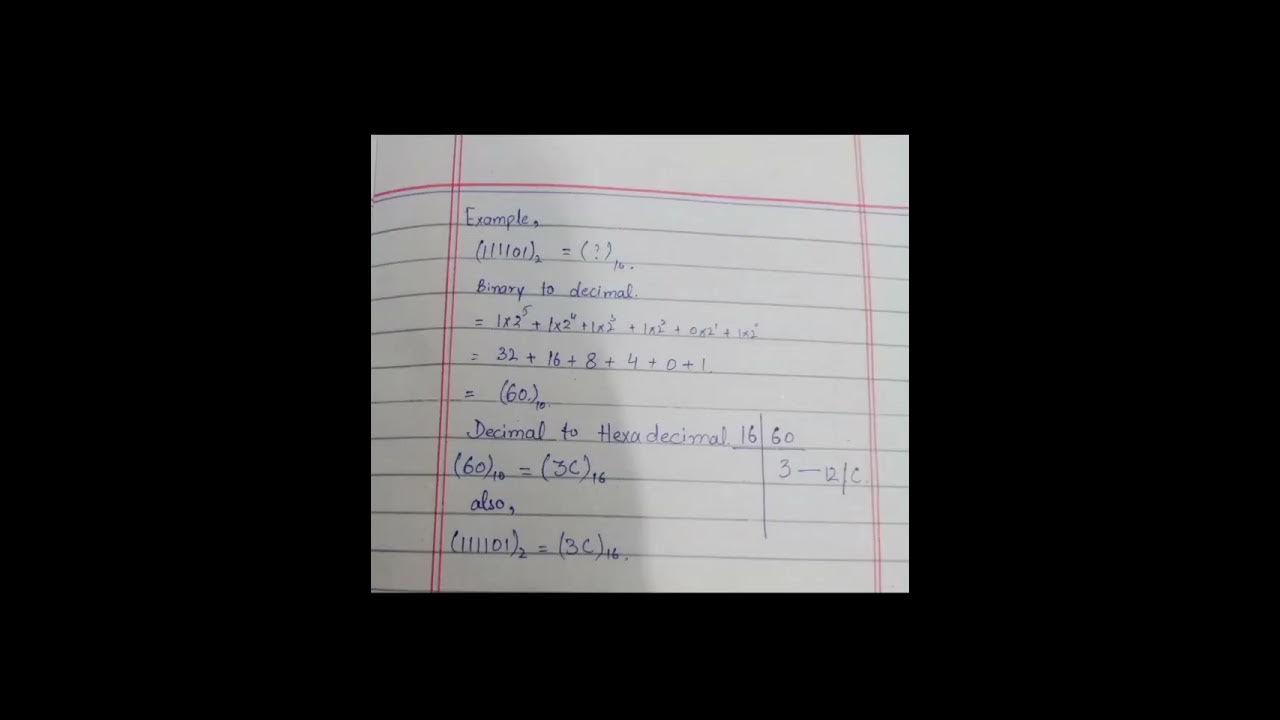 Example,
(111101)₂ = (?)₁₀.
Binary to decimal.
= 1×2⁵ + 1×2⁴ + 1×2³ + 1×2² + 0×2¹ + 1×2⁰
= 32 + 16 + 8 + 4 + 0 + 1.
= (60.)₁₀.
Decimal to Hexadecimal. 16 | 60
(60)₁₀ = (3C)₁₆ 3 — 12/C.
also,
(111101)₂ = (3C)₁₆.